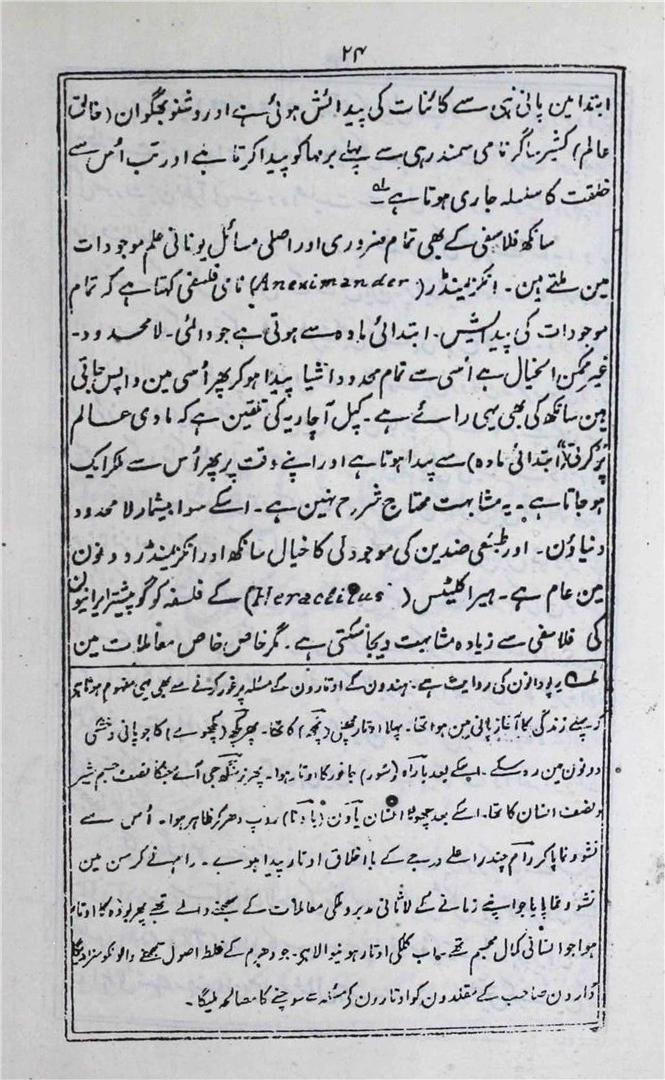 ۲۴
ابتدا مین پانی ہی سے کائنات کی پیدائش ہوئی ہے اور وشنو بھگوان (خالق
عالم) کشیر ساگر نامی سمندر ہی سے پہلے برہما کو پیدا کرتا ہے اور تب اُس سے
خلقت کا سلسلہ جاری ہوتا ہے ۱ے
سانکھ فلاسفی کے بھی تمام ضروری اور اصلی مسائل یونانی علم موجودات
مین ملتے ہین۔ انکزیمینڈر (Aneximander) نامی فلسفی کہتا ہے کہ تمام
موجودات کی پیدائش۔ ابتدائی مادہ سے ہوتی ہے جو دائمی۔ لامحدود۔
غیر ممکن الخیال ہے اُسی سے تمام محدود اشیا پیدا ہو کر پھر اُسی مین واپس جاتی
ہین سانکھ کی بھی یہی رائے ہے۔ کپل آچاریہ کی تلقین ہے کہ مادی عالم
پرکرتی (ابتدائی مادہ) سے پیدا ہوتا ہے اور اپنے وقت پر پھر اُس سے ملکر ایک
ہو جاتا ہے۔ یہ مشابہت محتاج شرح نہین ہے۔ اسکے سوا بیشمار لامحدود
دنیاؤن۔ اور طبعی ضدین کی موجودگی کا خیال سانکھ اور انکزیمینڈر دونون
مین عام ہے۔ ہیراکلیٹس (Heraclitus) کے فلسفہ کو گو بیشتر ایرانیون
کی فلاسفی سے زیادہ مشابہت دیجا سکتی ہے۔ مگر خاص خاص معاملات مین
۱ے یہ پورانون کی روایت ہے۔ ہندون کے اوتارون کے مسئلہ پر غور کرنے سے بھی یہی مفہوم ہوتا ہے
کہ پہلے زندگی کا آغاز پانی مین ہوا تھا۔ پہلا اوتار مچھلی (مچھ) کا تھا۔ پھر کچھ (کچھوے) کا جو پانی و خشکی
دونون مین رہ سکے۔ اسکے بعد باراہ (سُور) جانور کا اوتار ہوا۔ پھر نرسنگھ جی آئے جنکا نصف جسم شیر
و نصف انسان کا تھا۔ اسکے بعد چھوٹا انسان باون (باونا) روپ دھر کر ظاہر ہوا۔ اُس سے
نشو و نما پا کر رام چندر اعلے درجے کے با اخلاق اوتار پیدا ہوے۔ رام نے کرسن مین
نشو و نما پایا جو اپنے زمانے کے لاثانی مدبر و ملکی معاملات کے سمجھنے والے تھے پھر بودھ کا اوتار
ہوا جو انسانی کمال مجسم تھے۔ اب کلکی اوتار ہونیوالا ہے۔ جو دھرم کے غلط اصول سمجھنے والونکو سزا دیگا
ڈارون صاحب کے مقلدون کو اوتارون کی مسئلہ سے سوچنے کا مصالحہ ملیگا۔